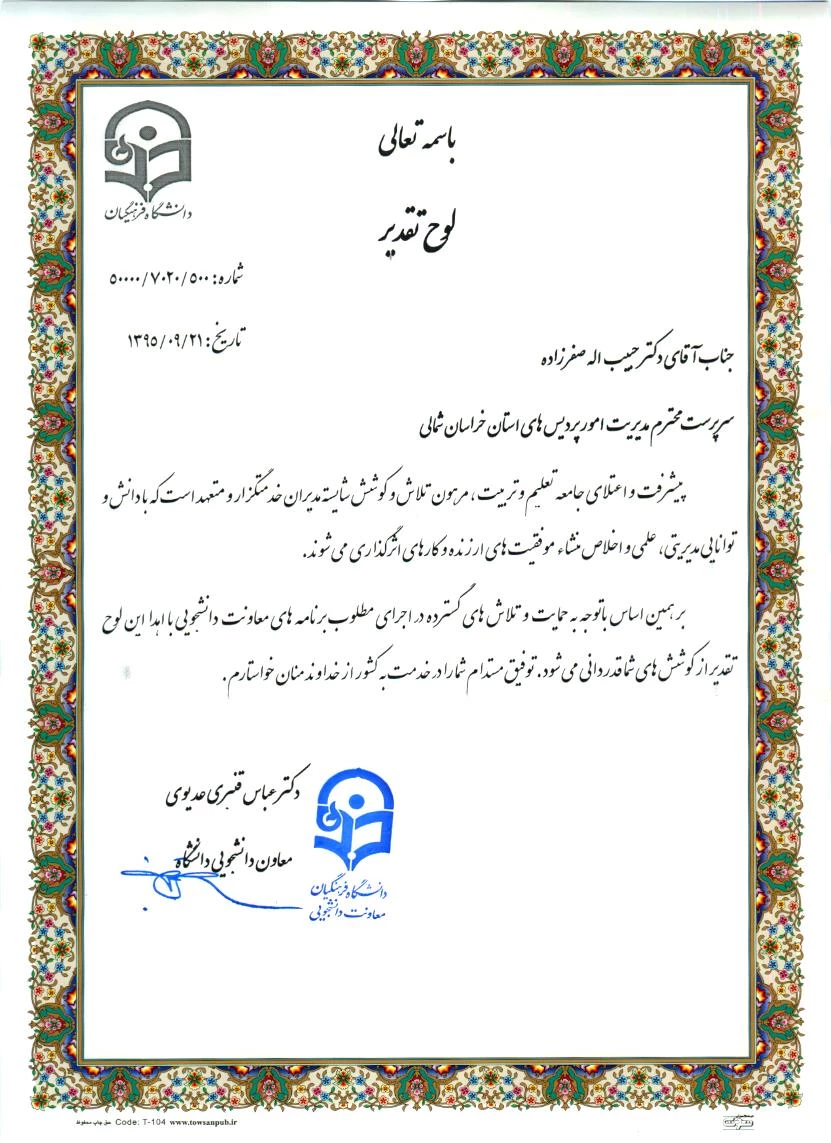 باسمه تعالی
دانشگاه فرهنگیان
لوح تقدیر
شماره: ۵۰۰۰۰/۷۰۲۰/۵۰۰
تاریخ: ۱۳۹۵/۰۹/۲۱
جناب آقای دکتر حبیب اله صفرزاده
سرپرست محترم مدیریت امور پردیس های استان خراسان شمالی
پیشرفت و اعتلای جامعه تعلیم و تربیت، مرهون تلاش و کوشش شایسته مدیران خدمتگزار و متعهد است که با دانش و
توانایی مدیریتی، علمی و اخلاص منشاء موفقیت های ارزنده و کارهای اثرگذاری می شوند.
بر همین اساس با توجه به حمایت و تلاش های گسترده در اجرای مطلوب برنامه های معاونت دانشجویی با اهدا این لوح
تقدیر از کوشش های شما قدردانی می شود. توفیق مستدام شما را در خدمت به کشور از خداوند منان خواستارم.
دکتر عباس قنبری عدیوی
معاون دانشجویی دانشگاه
دانشگاه فرهنگیان
معاونت دانشجویی
حق چاپ محفوظ Code: T-104 www.towsanpub.ir